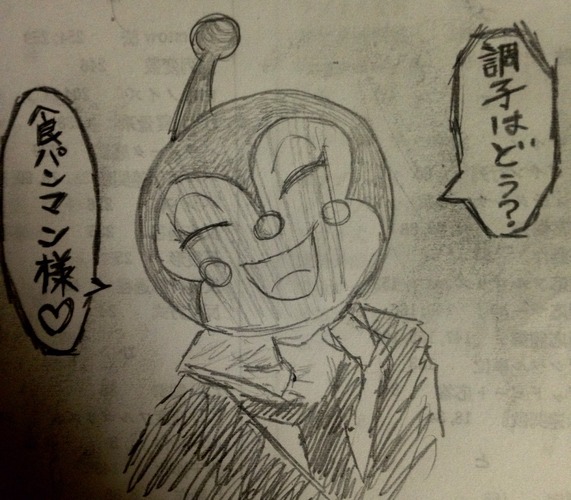 調子はどう?
食パンマン様♡